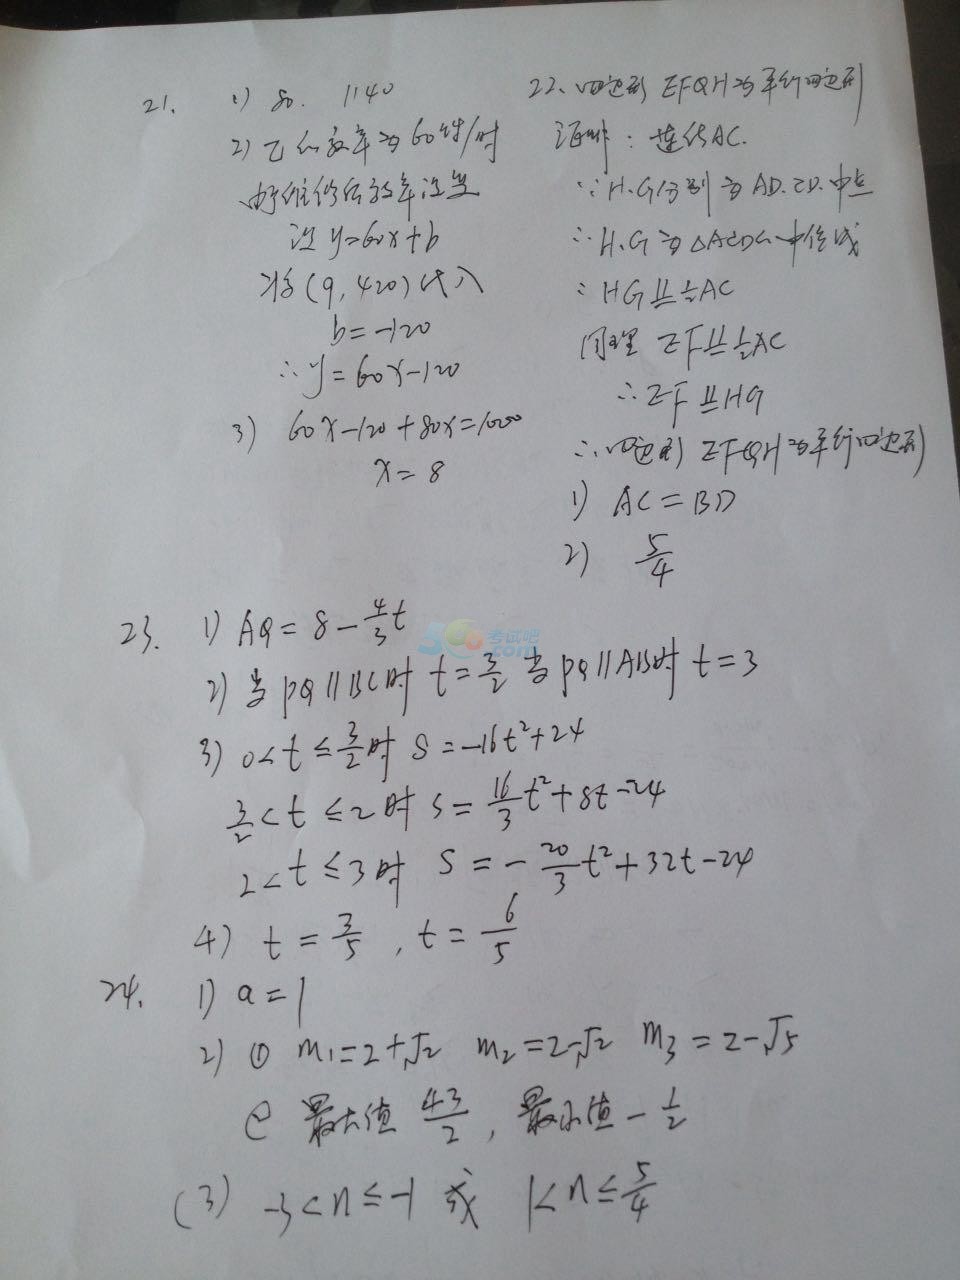 21. 1) 80. 1140
2) 乙的效率为60件/时
好维修后效率没变
设 y=60x+b
将(9, 420)代入
b=-120
∴y=60x-120
3) 60x-120+80x=1000
x=8
22、四边形 EFGH为平行四边形
证明：连结AC.
∵H.G分别为AD.CD.中点
∴H.G为△ACD的中位线
∴HG⫽½AC
同理 EF⫽½AC
∴EF⫽HG
∴四边形 EFGH为平行四边形
1) AC=BD
2) 5/4
23. 1) AQ=8-4/3t
考试吧
.com
2) 当PQ//BC时 t=3/2 当PQ//AB时 t=3
3) 0<t≤3/2时 S=-16t²+24
3/2<t≤2时 S=16/3t²+8t-24
2<t≤3时 S=-20/3t²+32t-24
4) t=3/5, t=6/5
24. 1) a=1
2) ① m₁=2+√2 m₂=2-√2 m₃=2-√5
② 最大值 43/2, 最小值-1/2
(3) -3<n≤-1 或 1<n≤5/4